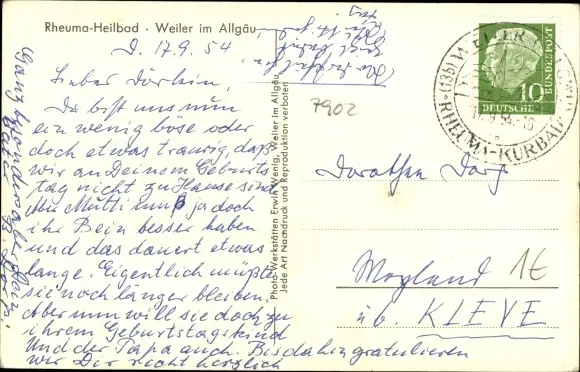 Rheuma-Heilbad · Weiler im Allgäu
D. 17.9.54
Liebes Dörlein,
Du bist uns nun
ein wenig böse oder
doch etwas traurig, daß
wir an Deinem Geburts
tag nicht zu Hause sind
Mutti muß ja doch
ihr Bein besser haben
und das dauert etwas
lange. Eigentlich müßte
sie noch länger bleiben.
Aber nun will sie doch zu
ihrem Geburtstagskind
Und der Papa auch. Bis dahin gratulieren
wir Dir recht herzlich
Ganz besonders aber
Photo-Werkstätten Erwin Wenig, Weiler im Allgäu
Jede Art Nachdruck und Reproduktion verboten
7902
10
DEUTSCHE
BUNDESPOST
(13b) WEILER
17.9.54
RHEUMA-KURBAD
Dorothea Dorp
Moyland
üb. KLEVE
1€